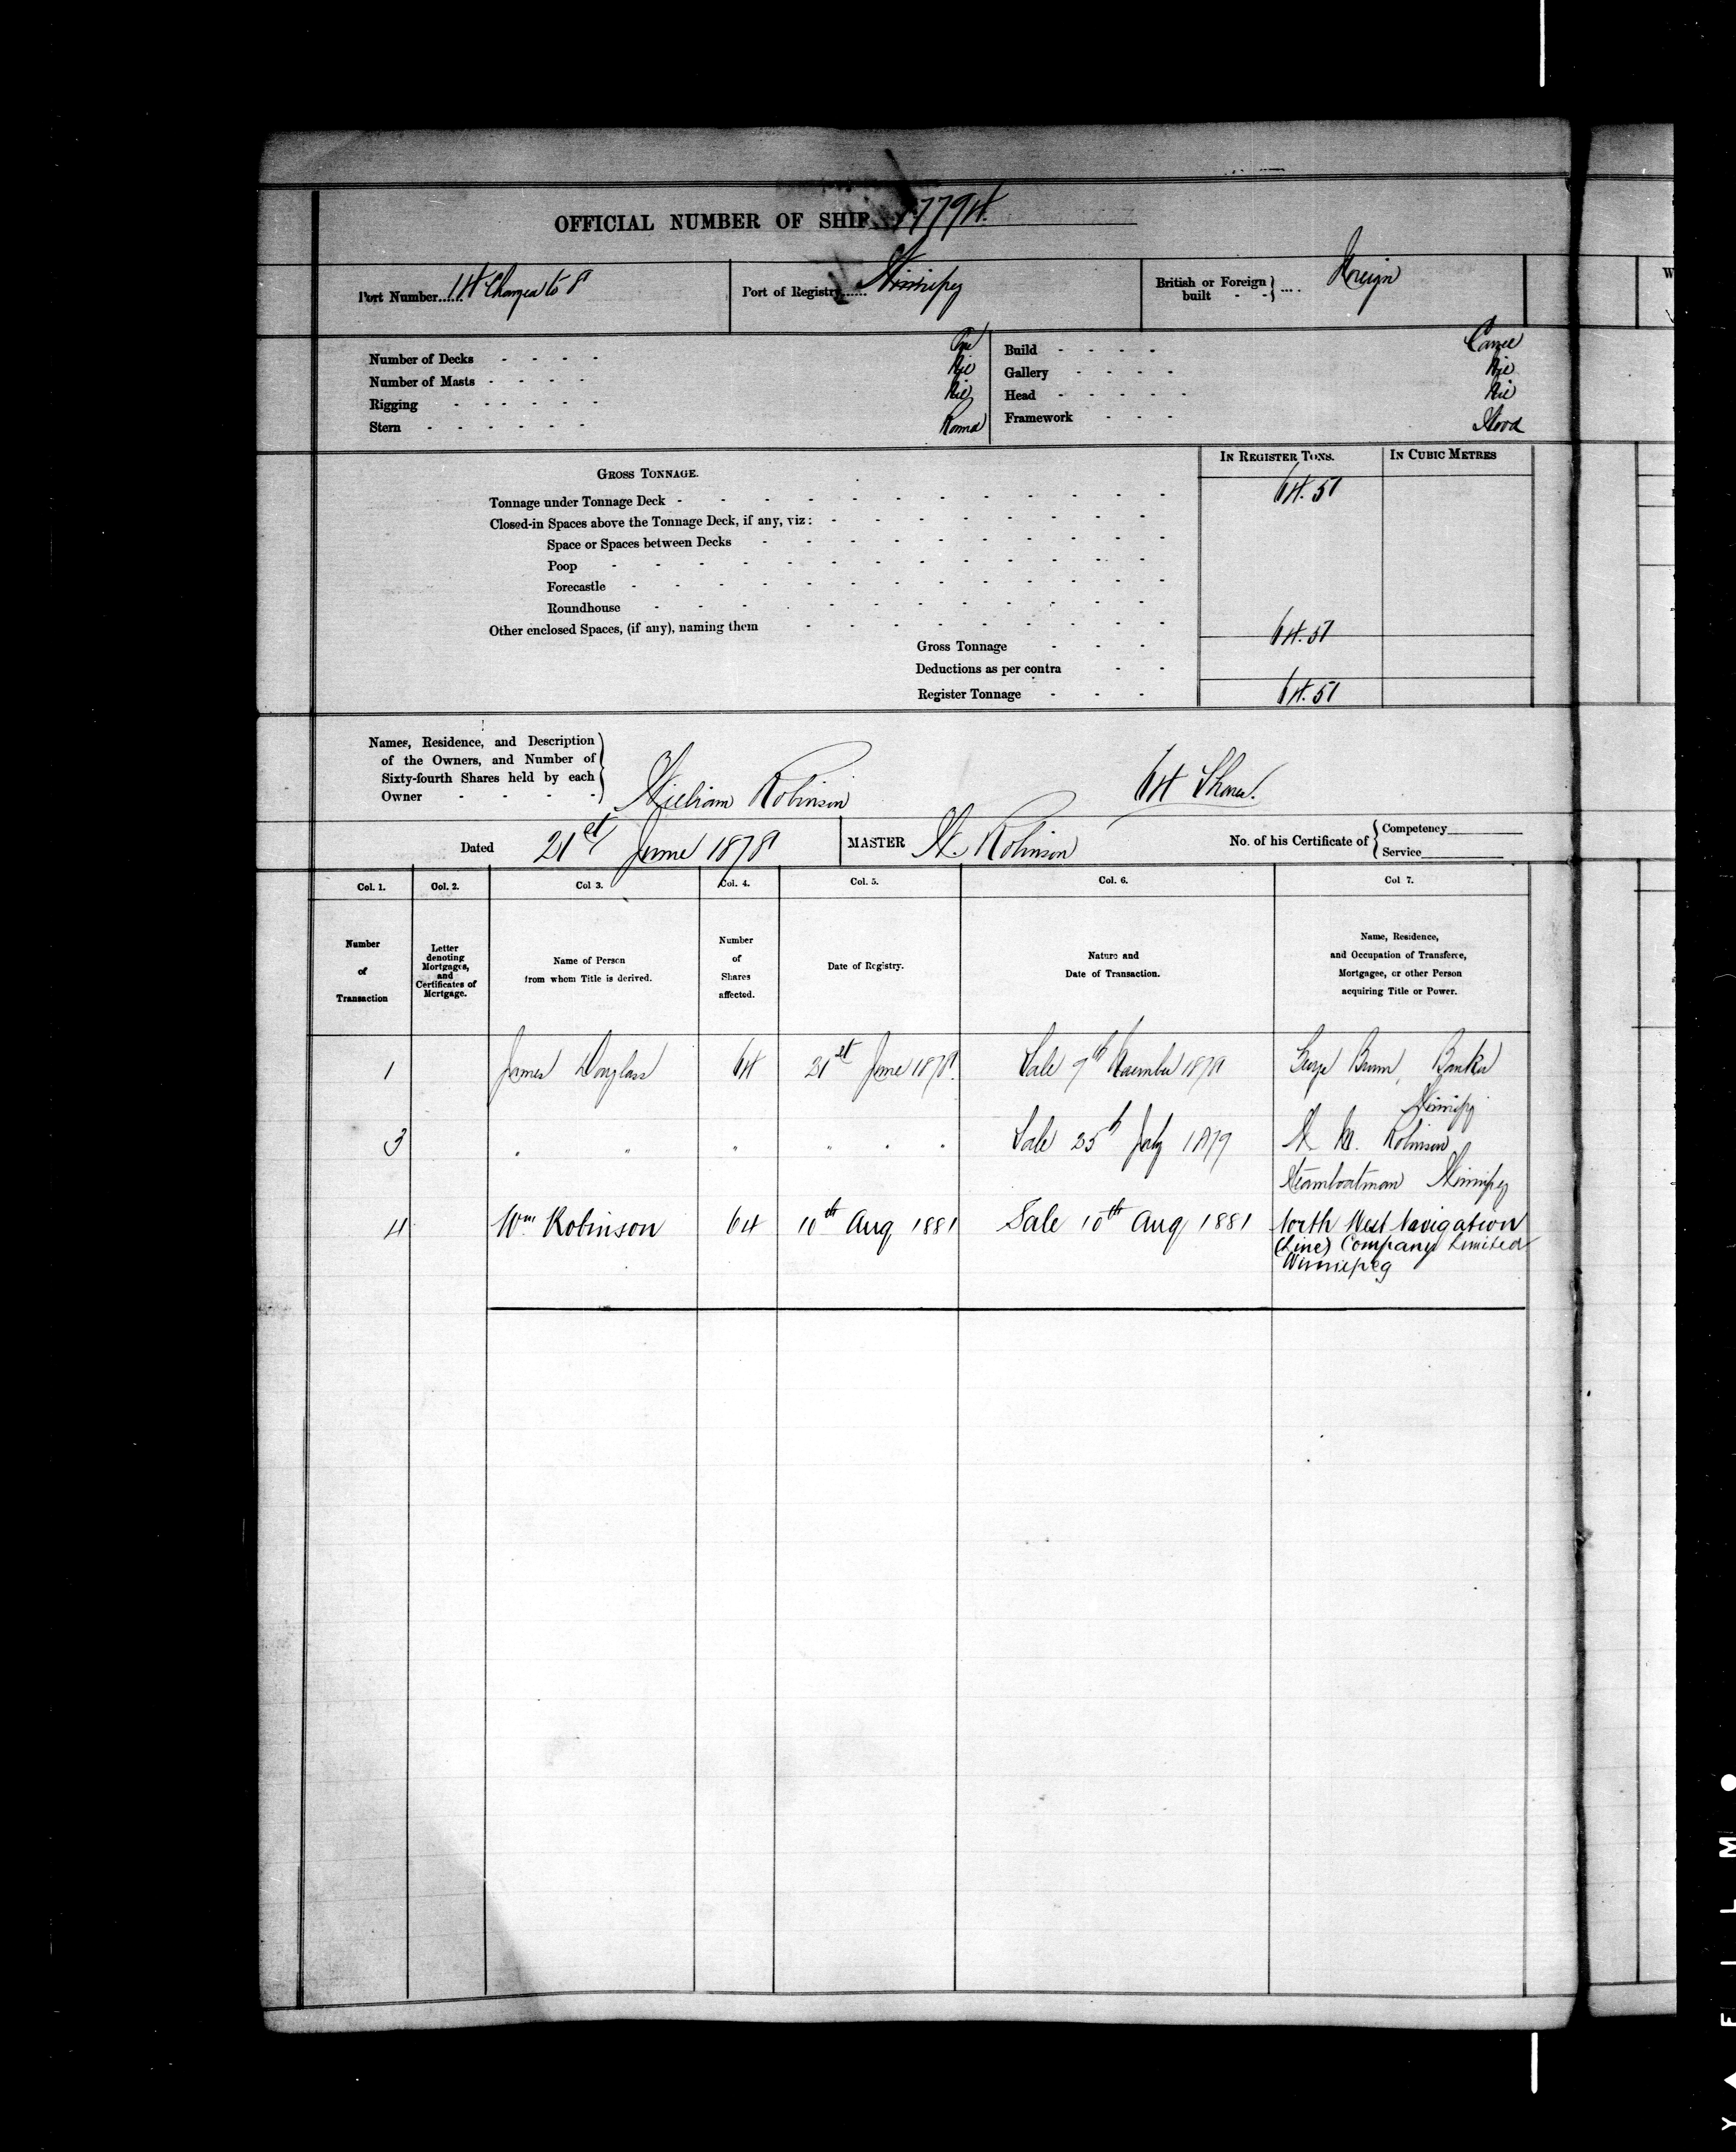 OFFICIAL NUMBER OF SHIP 77794.
Port Number..... 14 Changed to 8
Port of Registry...... Winnipeg
British or Foreign built - - } .... Foreign
Number of Decks - - - - One
Number of Masts - - - - Nil
Rigging - - - - - - Nil
Stern - - - - - - Round
Build - - - - Carvel
Gallery - - - - Nil
Head - - - - - Nil
Framework - - - Wood
IN REGISTER TONS. IN CUBIC METRES
GROSS TONNAGE.
Tonnage under Tonnage Deck - 64.51
Closed-in Spaces above the Tonnage Deck, if any, viz: -
Space or Spaces between Decks -
Poop -
Forecastle -
Roundhouse -
Other enclosed Spaces, (if any), naming them
Gross Tonnage - - - 64.51
Deductions as per contra - -
Register Tonnage - - - 64.51
Names, Residence, and Description
of the Owners, and Number of
Sixty-fourth Shares held by each
Owner - - - - William Robinson 64 Shares.
Dated 21st June 1878 MASTER W. Robinson No. of his Certificate of { Competency
Service
Col. 1. Col. 2. Col 3. Col. 4. Col. 5. Col. 6. Col 7.
Number
of
Transaction
Letter
denoting
Mortgages,
and
Certificates of
Mortgage.
Name of Person
from whom Title is derived.
Number
of
Shares
affected.
Date of Registry.
Nature and
Date of Transaction.
Name, Residence,
and Occupation of Transferee,
Mortgagee, or other Person
acquiring Title or Power.
1 James Douglass 64 21st June 1878. Sale 9th November 1878 George Brown, Banker
Winnipeg
3 " " " " " " Sale 25th July 1879 Robinson
Steamboatman Winnipeg
4 Wm Robinson 64 10th Aug 1881 Sale 10th Aug 1881 North West Navigation
(Line) Company Limited
Winnipeg
W